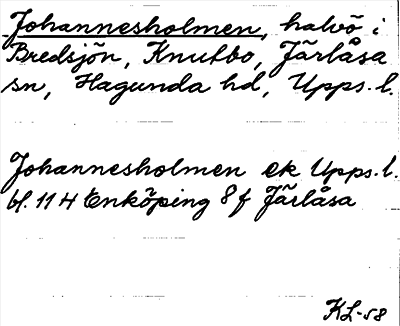 Johannesholmen, halvö i
Bredsjön, Knutbo, Järlåsa
sn, Hagunda hd, Upps. l.
Johannesholmen ek Upps. l.
bl. 114 Enköping 8 f Järlåsa
KL-58